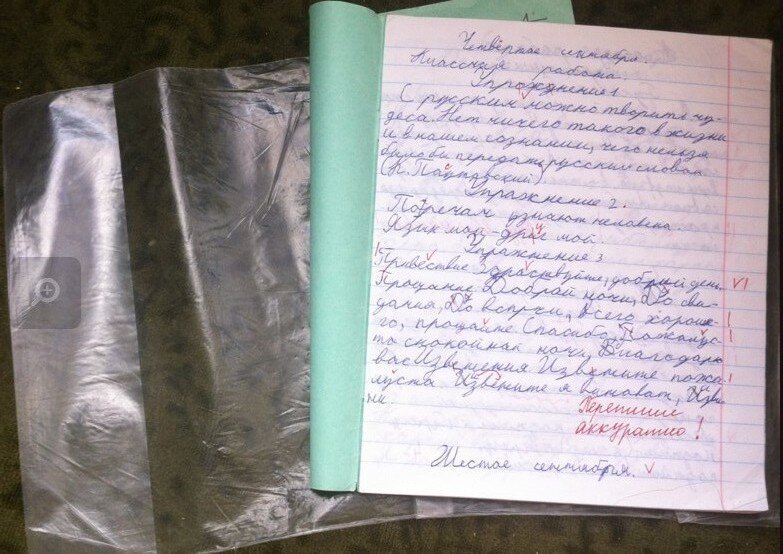 Четвёртое сентября.
Классная работа.
Упражнение 1
С русским можно творить чу-
деса. Нет ничего такого в жизни
и в нашем сознании, чего нельзя
было бы передать русским словом
(К. Паустовский)
Упражнение 2.
По речам узнают человека.
Язык мой - друг мой.
Упражнение 3
Привествие Здраствуйте, добрый день
Прощание Доброй ночи, До сви-
дания, До встречи, Всего хороше-
го, прощайте Спасибо, Пожалус-
та спокойной ночи, Благодарю
вас Извинения Извените пожа-
луста Извените я виноват, Изви
ни.
Перепиши
аккуратно!
Шестое сентября.